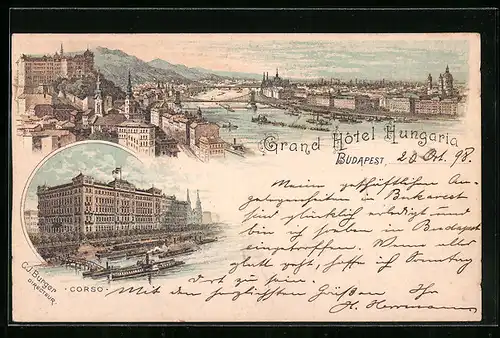 Grand Hôtel Hungaria
BUDAPEST, 20 Oct. 98.
Meine geschäftlichen An-
gelegenheiten in Bukarest
sind glücklich erledigt und
bin ich soeben in Budapest
eingetroffen. Wenn alles
glatt geht, hoffe ich Sonntag
dort zu sein.
Mit den herzlichsten Grüßen Ihr
H. Herrmann
C. J. Burger
DIRECTEUR.
· CORSO ·